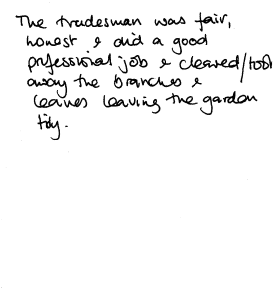 The tradesman was fair,
honest & did a good
professional job & cleared/took
away the branches &
leaves leaving the garden
tidy.